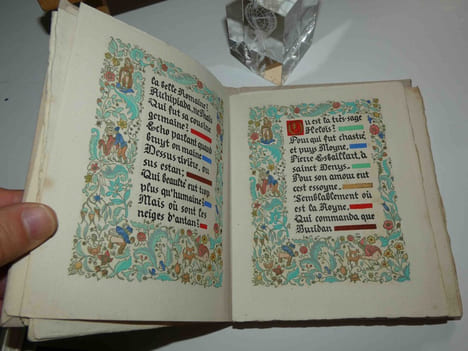 la belle Romaine ?
Archipiada, ne Thaïs
Qui fut sa cousine
germaine ?
Echo parlant quand
bruyt on maine
Dessus rivière, ou
sus estan ;
Qui beaulté eut trop
plus qu'humaine ?
Mais où sont les
neiges d'antan ?
Ou est la très-sage
Helois ?
Pour qui fut chastré
et puys Moyne,
Pierre Esbaillart, à
sainct Denys.
Pour son amour eut
cest essoyne.
Semblablement où
est la Royne,
Qui commanda que
Buridan